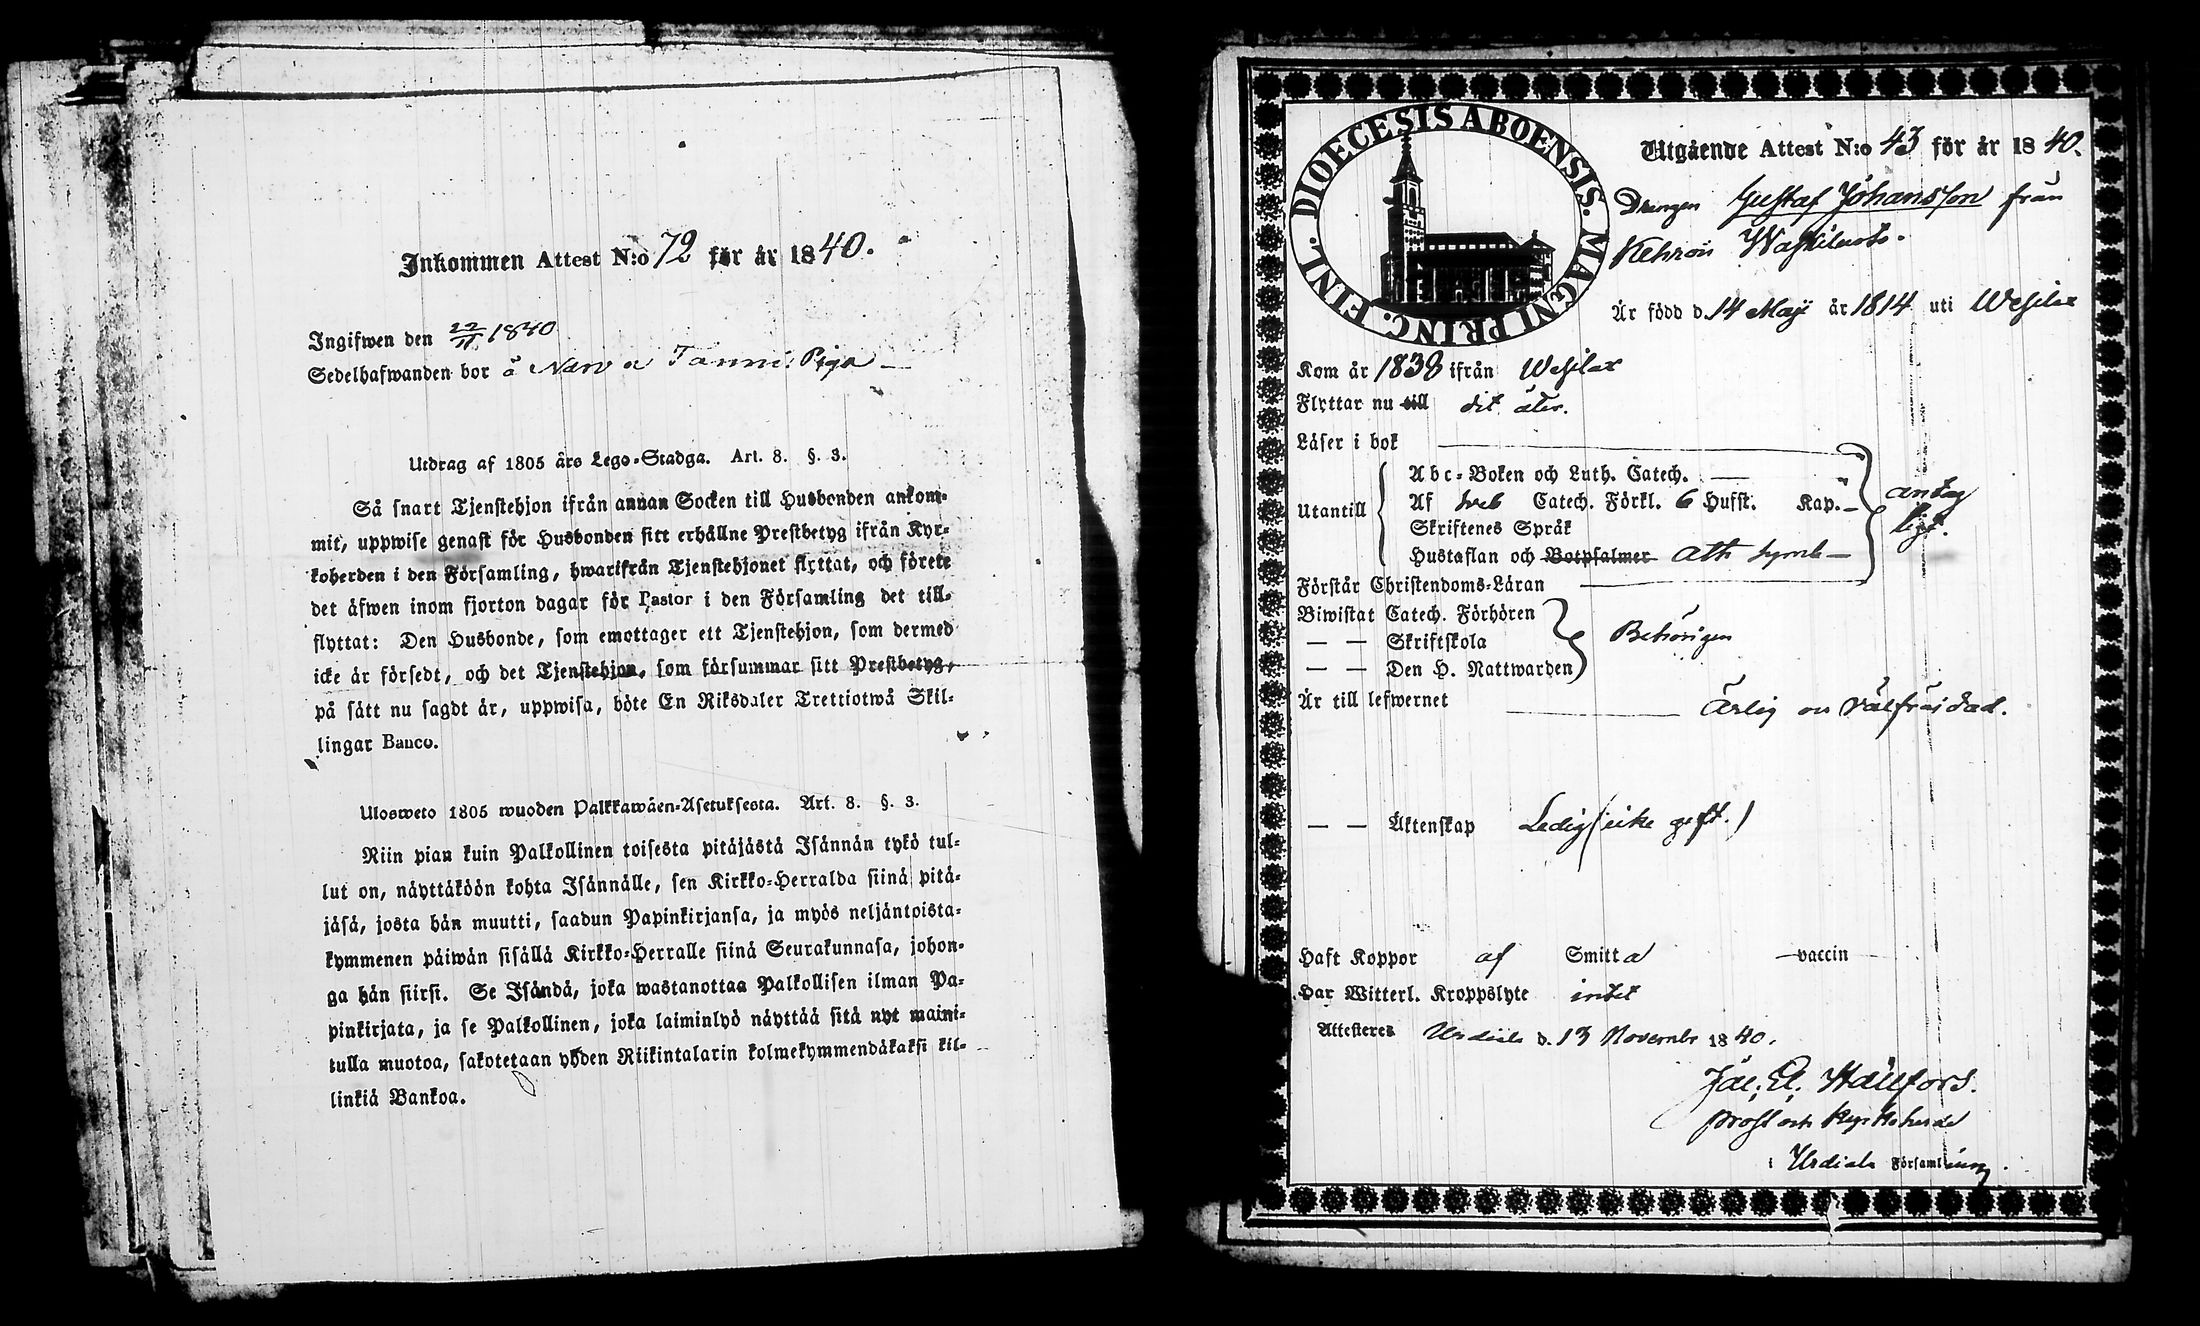 Inkommen Attest N:o 72 för år 1840.
Ingifwen den 22/11 1840
Sedelhafwanden bor å Narva Tanni Piga
Utdrag af 1805 års Lego-Stadga. Art. 8. §. 3.
Så snart Tjenstehjon ifrån annan Socken till Husbonden ankom-
mit, uppwise genast för Husbonden sitt erhållne Prestbetyg ifrån Kyr-
koherden i den Församling, hwarifrån Tjenstehjonet flyttat, och förete
det äfwen inom fjorton dagar för Pastor i den Församling det till-
flyttat: Den Husbonde, som emottager ett Tjenstehjon, som dermed
icke är försedt, och det Tjenstehjon, som försummar sitt Prestbetyg,
på sätt nu sagdt är, uppwisa, böte En Riksdaler Trettiotwå Skil-
lingar Banco.
Ulosweto 1805 wuoden Palkkawäen-Asetuksesta. Art. 8. §. 3.
Niin pian kuin Palkollinen toisesta pitäjästä Isännän tykö tul-
lut on, näyttäköön kohta Isännälle, sen Kirkko-Herralda siinä pitä-
jäsä, josta hän muutti, saadun Papinkirjansa, ja myös neljäntoista-
kymmenen päiwän sisällä Kirkko-Herralle siinä Seurakunnasa, johon-
ga hän siirsi. Se Isändä, joka wastanottaa Palkollisen ilman Pa-
pinkirjata, ja se Palkollinen, joka laiminlyö näyttää sitä nyt maini-
tulla muotoa, sakotetaan yhden Riikintalarin kolmekymmendäkaksi kil-
linkiä Bankoa.
DIOECESIS ABOENSIS. MAGNI PRINC. FINL.
Utgående Attest N:o 43 för år 1840.
Drengen Gustaf Johansson från
Kehrois
Är född d. 14 Maji år 1814 uti Wesilax
Kom år 1838 ifrån Wesilax
Flyttar nu till dit åter.
Läser i bok
Abc-Boken och Luth. Catech.
Utantill Af Sveb Catech. Förkl. 6 Hufst. Kap. antag
Skriftenes Språk ligt.
Hustaflan och Botpsalmer Ath Symb
Förstår Christendoms-Läran
Biwistat Catech. Förhören
— — Skriftskola Behörigen
— — Den H. Nattwarden
Är till lefwernet Ärlig och välfräjdad.
— — Äktenskap Ledig (icke gift.)
Haft Koppor af Smitta vaccin
Har Witterl. Kroppslyte intet
Attesteres Urdiala d. 13 November 1840.
Jac. El. Hällfors.
Prost och Kyrkoherde
i Urdiala Församling.